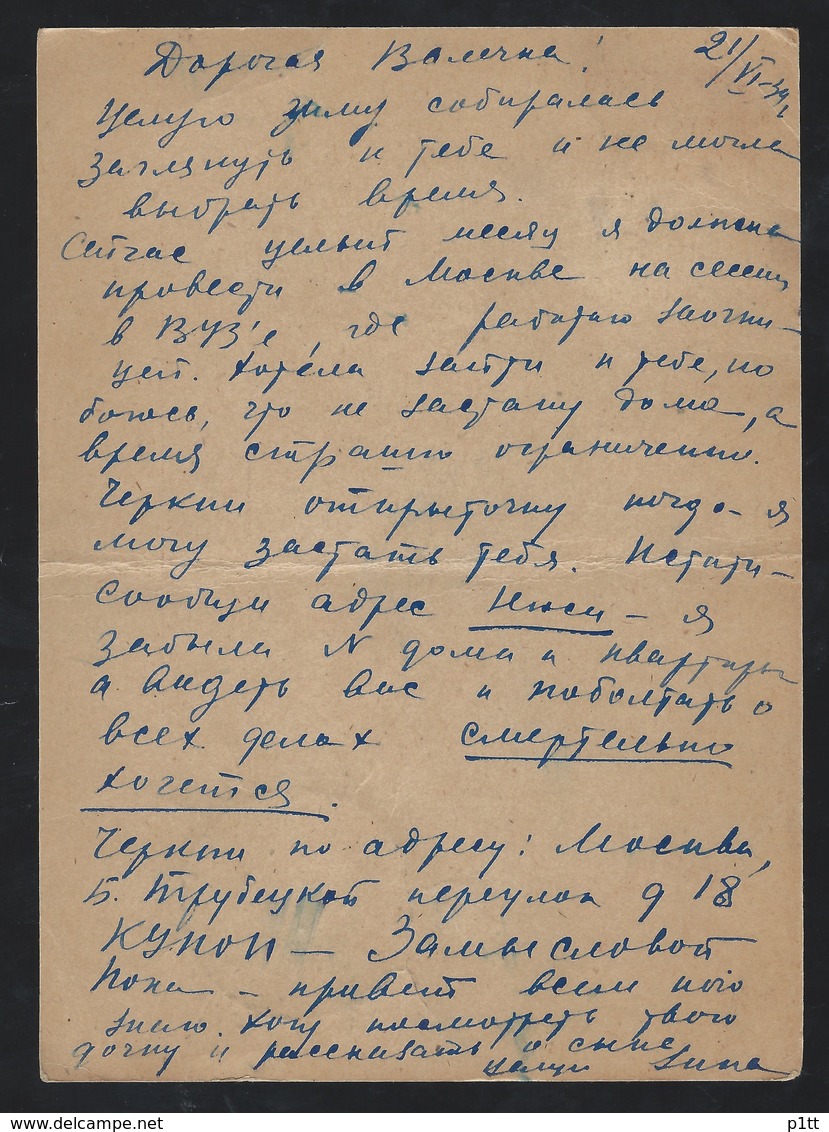 21/VI-39 г.
Дорогая Валечка!
Целую зиму собиралась
заглянуть к тебе и не могла
выбрать время.
Сейчас целый месяц я должна
провести в Москве на сессии
в ВУЗ'е, где работаю заочни-
цей. Хотела зайти к тебе, но
боюсь, что не застану дома, а
время страшно ограничено.
Черкни открыточку когда я
могу застать тебя. Кстати-
сообщи адрес Нюси - я
забыла N дома и квартиры
а видеть вас и поболтать о
всех делах смертельно
хочется.
Черкни по адресу: Москва,
Б. Трубецкой переулок д 18
КУНОН - Замысловой
Пока - привет всем кого
знаю. Хочу посмотреть твою
дочку и рассказать о сыне
целую Зина
p1tt